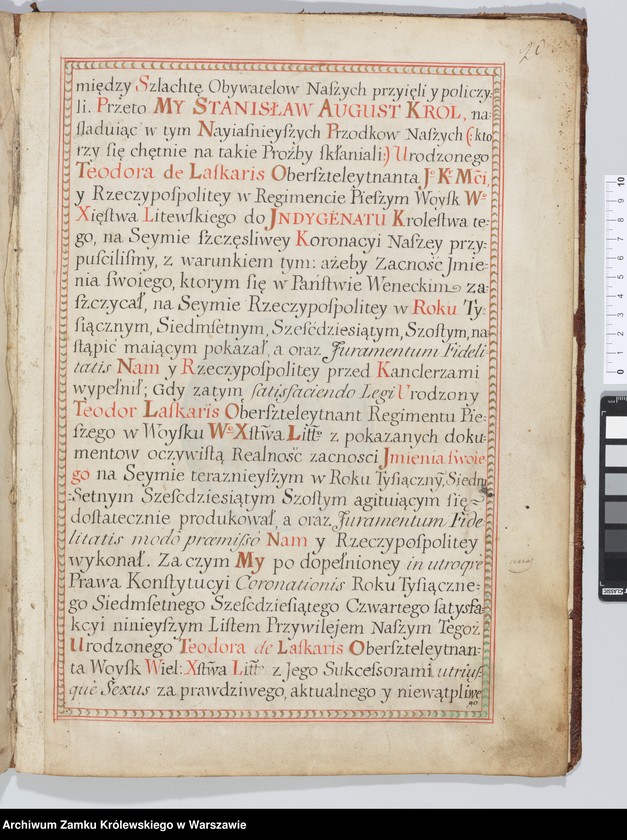 20
między Szlachtę Obywatelow Naſzych przyięli y policzy:
li. Przeto MY STANISŁAW AUGUST KROL, na:
ſladuiąc w tym Nayiaſnieyſzych Przodkow Naſzych (:kto
rzy się chętnie na takie Proźby ſkłaniali:) Urodzonego
Teodora de Laſkaris Oberſzteleytnanta J.K.Mći,
y Rzeczypoſpolitey w Regimencie Pieſzym Woyſk W.
Xięſtwa Litewſkiego do JNDYGENATU Kroleſtwa te:
go, na Seymie ſzczęsliwey Koronacyi Naſzey przy:
puſciliſmy, z warunkiem tym: ażeby Zacność Jmie:
nia ſwoiego, ktorym się w Pańſtwie Weneckim za:
ſzczycał, na Seymie Rzeczypoſpolitey w Roku Ty:
ſiącznym, Siedmſetnym, Szeſćdzieſiątym, Szoſtym, na
ſtąpić maiącym pokazał, a oraz Juramentum Fideli
tatis Nam y Rzeczypoſpolitey przed Kanclerzami
wypełnił; Gdy zatym ſatisfaciendo Legi Urodzony
Teodor Laſkaris Oberſzteleytnant Regimentu Pie:
ſzego w Woyſku W. Xſtwa Litt: z pokazanych doku:
mentow oczywiſtą Realność zacnosci Jmienia ſwoie:
go na Seymie teraznieyſzym w Roku Tyſiączny̅, Siedm
:Setnym Szeſcdzieſiątym Szoſtym agituiącym ſię
doſtatecznie produkował, a oraz Juramentum Fide
litatis modò præmiſso Nam y Rzeczypoſpolitey
wykonał. Za czym My po dopełnioney in utroqꝫ
Prawa Konſtytucyi Coronationis Roku Tyſiączne:
go Siedmſetnego Szeſcdzieſiątego Czwartego ſatysfa
kcyi ninieyſzym Liſtem Przywilejem Naſzym Tegoż
Urodzonego Teodora de Laſkaris Oberſzteleytnan:
ta Woyſk Wiel: Xſtwa Litt: z Jego Sukceſsorami utriuſ
què Sexus za prawdziwego, aktualnego y niewątpliwe
go
Archiwum Zamku Królewskiego w Warszawie